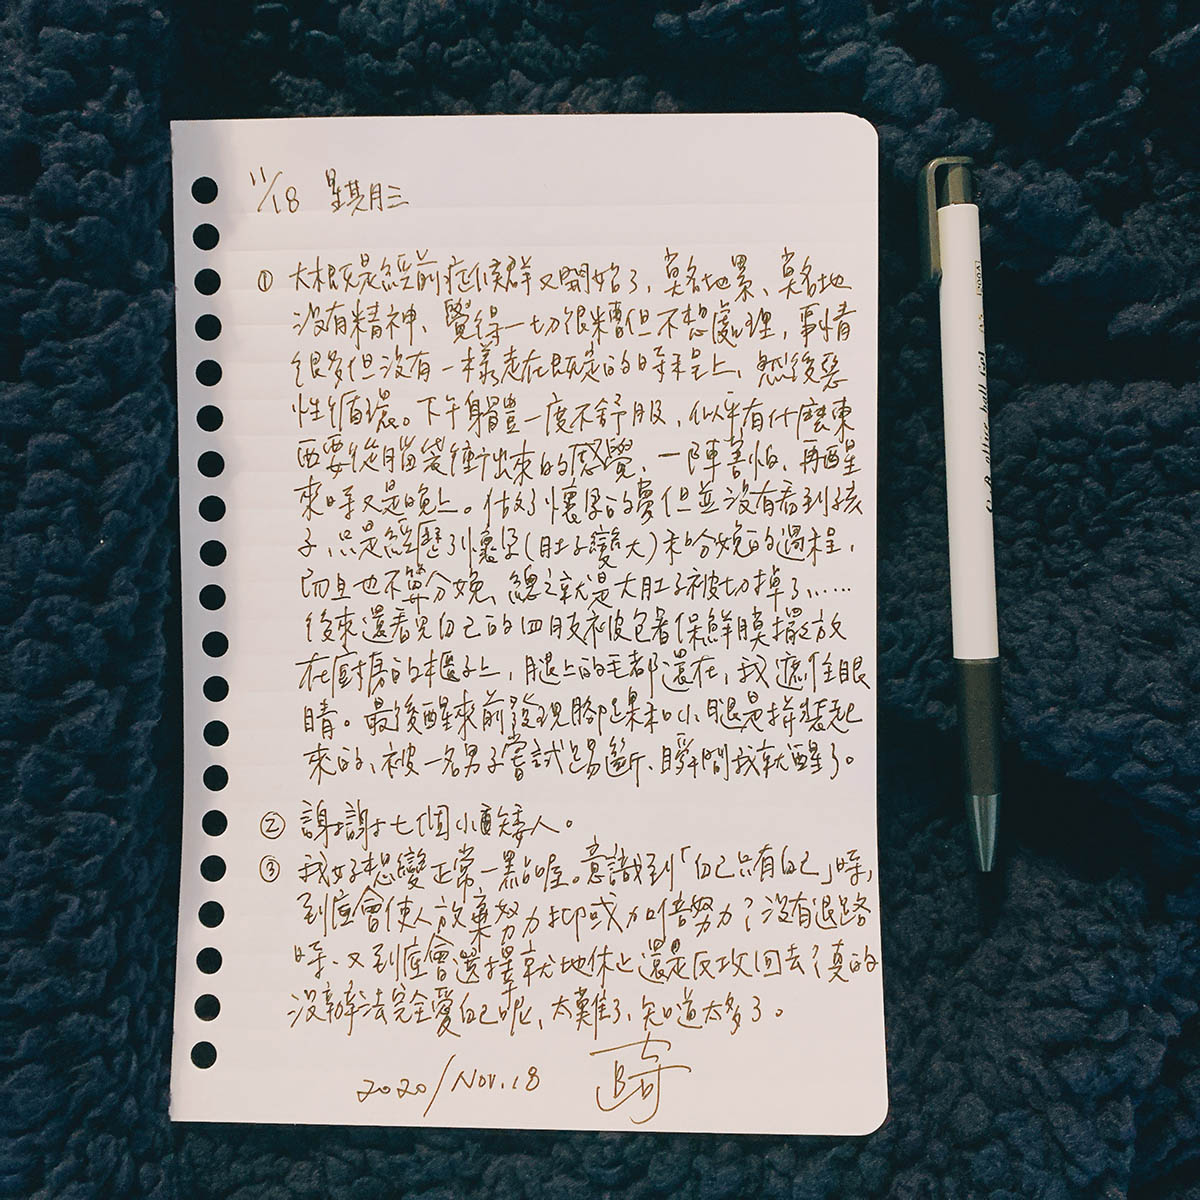 11/18 星期三
① 大概是經前症候群又開始了，莫名地累、莫名地
沒有精神、覺得一切很糟但不想處理，事情
很多但沒有一樣走在既定的時程上，然後惡
性循環。下午身體一度不舒服，似乎有什麼東
西要從腦袋衝出來的感覺，一陣害怕、再醒
來時又是晚上。做了懷孕的夢但並沒有看到孩
子，只是經歷到懷孕(肚子變大)和分娩的過程，
而且也不算分娩，總之就是大肚子被切掉了……
後來還看見自己的四肢被包著保鮮膜擺放
在廚房的櫃子上，腿上的毛都還在，我遮住眼
睛。最後醒來前發現腳踝和小腿是拼裝起
來的、被一名男子嘗試踢斷、瞬間我就醒了。
② 謝謝七個小酸矮人。
③ 我好想變正常一點喔。意識到「自己只有自己」時，
到底會使人放棄努力抑或加倍努力？沒有退路
時、又到底會選擇就地休止還是反攻回去？真的
沒辦法完全愛自己呢，太難了，知道太多了。
2020/Nov.18